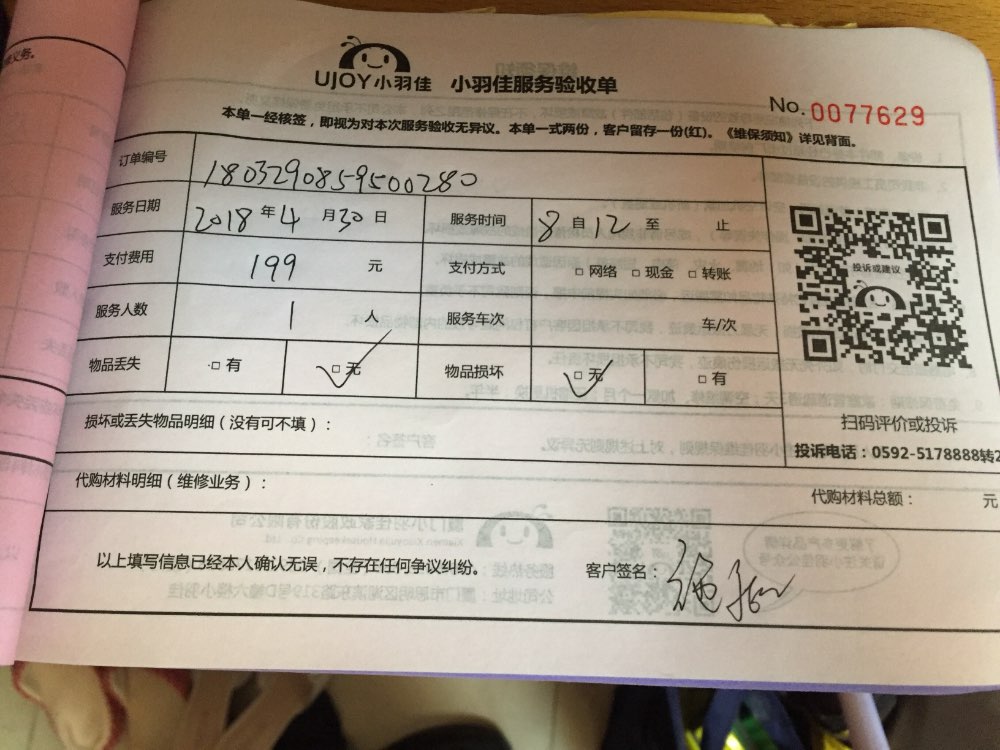 UJOY小羽佳 小羽佳服务验收单
No. 0077629
本单一经核签，即视为对本次服务验收无异议。本单一式两份，客户留存一份(红)。《维保须知》详见背面。
订单编号 1803290859500280
服务日期 2018年4月30日 服务时间 8自12至 止
支付费用 199 元 支付方式 □网络 □现金 □转账
投诉或建议
服务人数 1 人 服务车次 车/次
物品丢失 □有 □无 物品损坏 □无 □有
扫码评价或投诉
损坏或丢失物品明细（没有可不填）：
投诉电话：0592-5178888转2
代购材料明细（维修业务）： 代购材料总额： 元
以上填写信息已经本人确认无误，不存在任何争议纠纷。 客户签名：